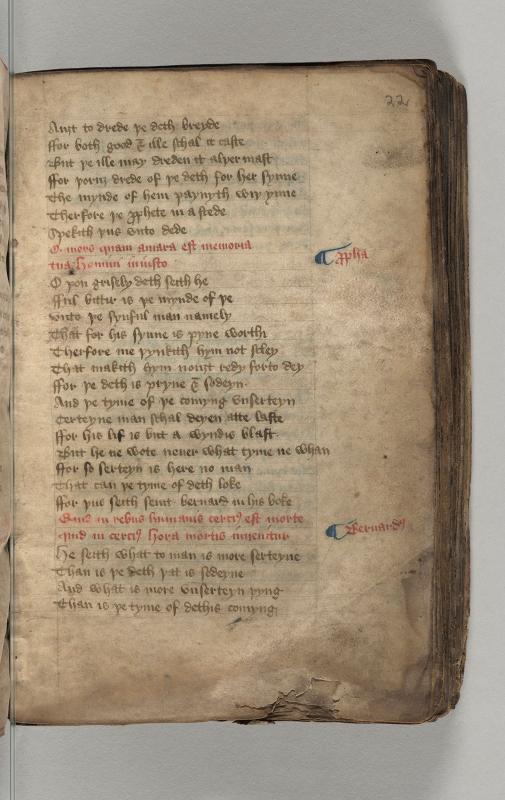 22
Auȝt to drede þe deth breyde
ffor both good & ille schal it taste
But þe ille may dreden it alþermast
ffor þoruȝ drede of þe deth for her synne
The mynde of hem paynyth wiþ ynne
Therfore þe ꝓphete in a stede
Spekith þus vnto dede
O mors quam amara est memoria
tua homini iniusto
ꝓpha
O þou grisely deth seith he
fful bittir is þe mynde of þe
vnto þe synful man namely
That for his synne is pyne worthi
Therfore me þynkith hym not seley
That makith hym nouȝt redy forto dey
ffor þe deth is pryue & sodeyn
And þe tyme of þe comyng vnserteyn
Certeyne man schal deyen atte laste
ffor his lif is but a wyndis blast
But he ne wote neuer what tyme ne whan
ffor so serteyn is here no man
That can þe tyme of deth loke
ffor þus seith seint bernard in his boke
Quid in rebus humanis certiꝰ est morte
quid in certiꝰ hora mortis inuenitur
Bernardꝰ
He seith what to man is more serteyne
Than is þe deth þat is sodeyne
And what is more vnserteyn þyng
Than is þe tyme of dethis comyng